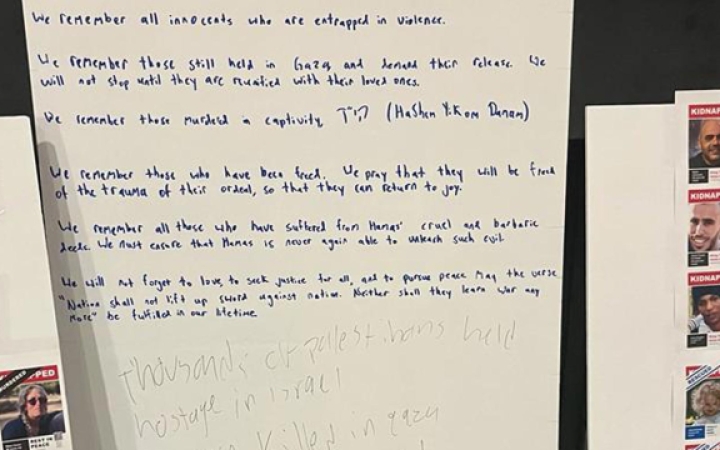 We remember all innocents who are entrapped in violence.
We remember those still held in Gaza and demand their release. We
will not stop until they are reunited with their loved ones.
We remember those murdered in captivity הי"ד (HaShem Yikom Damam)
We remember those who have been freed. We pray that they will be freed
of the trauma of their ordeal, so that they can return to joy.
We remember all those who have suffered from Hamas' cruel and barbaric
deeds. We must ensure that Hamas is never again able to unleash such evil.
We will not forget to love, to seek justice for all, and to pursue peace May the verse
"Nation shall not lift up sword against nation. Neither shall they learn war any
more" be fulfilled in our lifetime.
Thousands of palestinans held
hostage in israel
killed in gaza
KIDNAP
KIDNAP
KIDNAP
RESCUED
MURDERED
PED
REST IN
PEACE